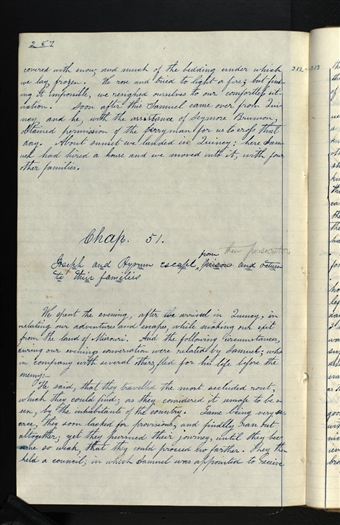 287
covered with snow, and much of the bedding under which
we lay, frozen. We rose and tried to light a fire; but find-
ing it imposible, we resigned ourselves to our comfortless sit-
uation. Soon after this Samuel came over from Quin-
cy, and he, with the assistance of Seymore Brunson,
obtained permission of the ferryman for us to cross that
day. About sunset we landed in Quincy: here Sam-
uel had hired a house and we moved into it, with four
other families.
312-313
Chap. 51.
from
Joseph and Hyrum escape prisons and return
to their families
We spent the evening, after we arrived in Quincy, in
relating our adventures and escapes, while making our exit
from the land of Missouri. And the following circumstances,
during our evenings conversation were related by Samuel; who
in company with several others, fled for his life before the
enemy.
He said, that they travelled the most secluded rout,
which they could find; as they considered it unsafe to be
seen, by the inhabitants of the country. Game being very
scarce, they soon lacked for provisions, and finally ran out
altogether; yet they pursued their journey, until they bec-
ame so weak, that they could proceed no farther. They then
held a council; in which Samuel was appointed to receive